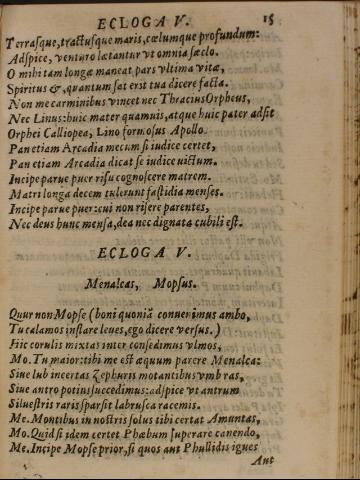 ECLOGA V. 15
Terrasque, tractusque maris, cælumque profundum:
Adspice, venturo lætantur vt omnia sæclo.
O mihi tam longæ maneat pars vltima vitæ,
Spiritus &, quantum sat erit tua dicere facta.
Non me carminibus vincet nec Thracius Orpheus,
Nec Linus: huic mater quamuis, atque huic pater adsit
Orphei Calliopea, Lino formosus Apollo.
Pan etiam Arcadia mecum si iudice certet,
Pan etiam Arcadia dicat se iudice victum.
Incipe parue puer risu cognoscere matrem.
Matri longa decem tulerunt fastidia menses.
Incipe parue puer: cui non risere parentes,
Nec deus hunc mensa, dea nec dignata cubili est.
ECLOGA V.
Menalcas, Mopsus.
Quur non Mopse (boni quoniã conuenimus ambo,
Tu calamos inflare leues, ego dicere versus.)
Hic corulis mixtas inter consedimus vlmos,
Mo. Tu maior: tibi me est æquum parere Menalca:
Siue sub incertas Zephuris motantibus vmbras,
Siue antro potius succedimus: adspice vt antrum
Siluestris raris sparsit labrusca racemis.
Me. Montibus in nostris solus tibi certat Amuntas,
Mo. Quid si idem certet Phæbum superare canendo,
Me. Incipe Mopse prior, si quos aut Phullidis igues
Aut